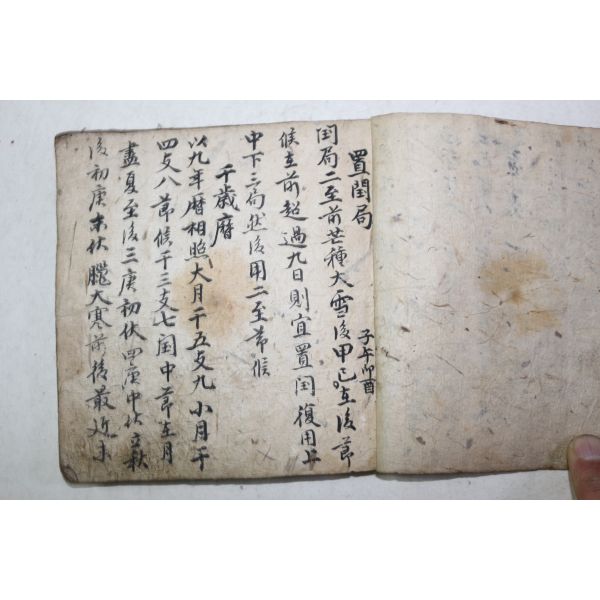 置閏局
閏局二至前芒種大雪後甲己在後節
子午卯酉
候在前超過九日則宜置閏復用上
中下三局然後用二至节候
千歲曆
以九年曆相照大月干五支九小月干
四支八節候干三支七閏中節在月
盡夏至後三庚初伏四庚中伏立秋
後初庚末伏臘大寒前後最近未